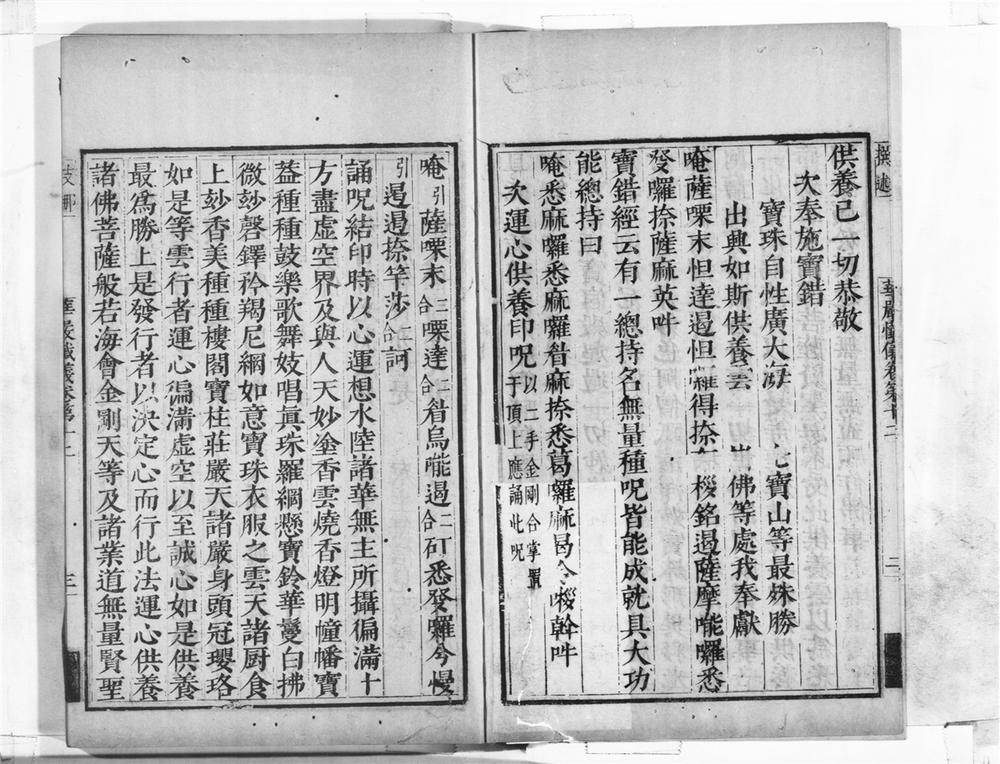 撰述
華嚴懺儀卷第十二
二
供養已一切恭敬
次奉施寶錯
寶珠自性廣大海
寶山等最殊勝
出興如斯供養雲
佛等處我奉獻
唵薩㗚末怛達遏怛囉得捺 桜銘遏薩摩能囉悉
癹囉捺薩麻英吽
寶錯經云有一總持名無量種呪皆能成就具大功
能總持曰
唵悉麻囉悉麻囉昝麻捺悉葛囉麻曷 桜斡吽
次運心供養印呪以二手金剛合掌置于頂上應誦此呪
唵引薩㗚末二合㗚達二合昝烏能遏二合矴悉癹囉今㬅
引遏遏捺竿莎二合訶
誦呪結印時以心運想水陸諸華無主所攝徧滿十
方盡虛空界及與人天妙塗香雲燒香燈明幢幡寶
葢種種鼓樂歌舞妓唱眞珠羅網懸寶鈴華鬘白拂
微玅磬鐸矜羯尼網如意寶珠衣服之雲天諸厨食
上玅香美種種樓閣寶柱莊嚴天諸嚴身頭冠瓔珞
如是等雲行者運心徧滿虛空以至誠心如是供養
最爲勝上是發行者以決定心而行此法運心供養
諸佛菩薩般若海會金剛天等及諸業道無量賢聖
華嚴懺儀卷第十二
三